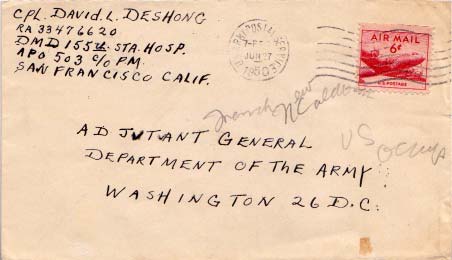 CPL. DAVID. L. DESHONG
RA 33476620
DMD 155TH STA. HOSP.
APO 503 C/O PM.
SAN FRANCISCO CALIF.
POSTAL
JUN 7
1950
AIR MAIL
6¢
U.S. POSTAGE
French New
US
ADJUTANT GENERAL
DEPARTMENT OF THE ARMY
WASHINGTON 26 D.C.